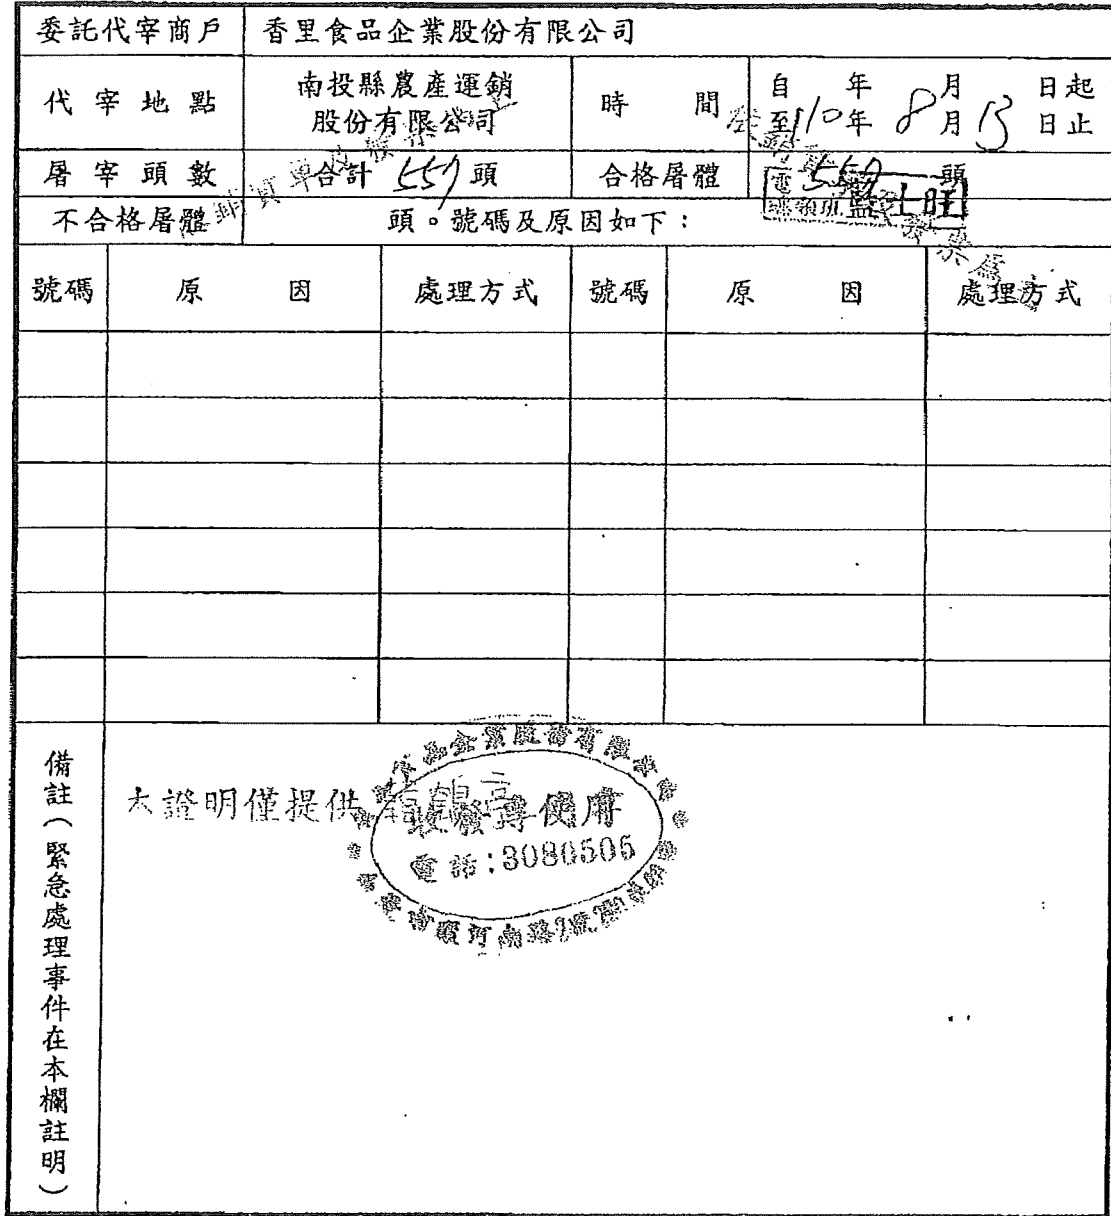 委託代宰商戶 香里食品企業股份有限公司
代宰地點 南投縣農產運銷股份有限公司 時間 自 年 月 日起
至110年8月13日止
屠宰頭數 合計 557 頭 合格屠體 557 頭
不合格屠體 頭。號碼及原因如下：
號碼 原因 處理方式 號碼 原因 處理方式
備註（緊急處理事件在本欄註明）
本證明僅提供
收發專使用
電話:3080505